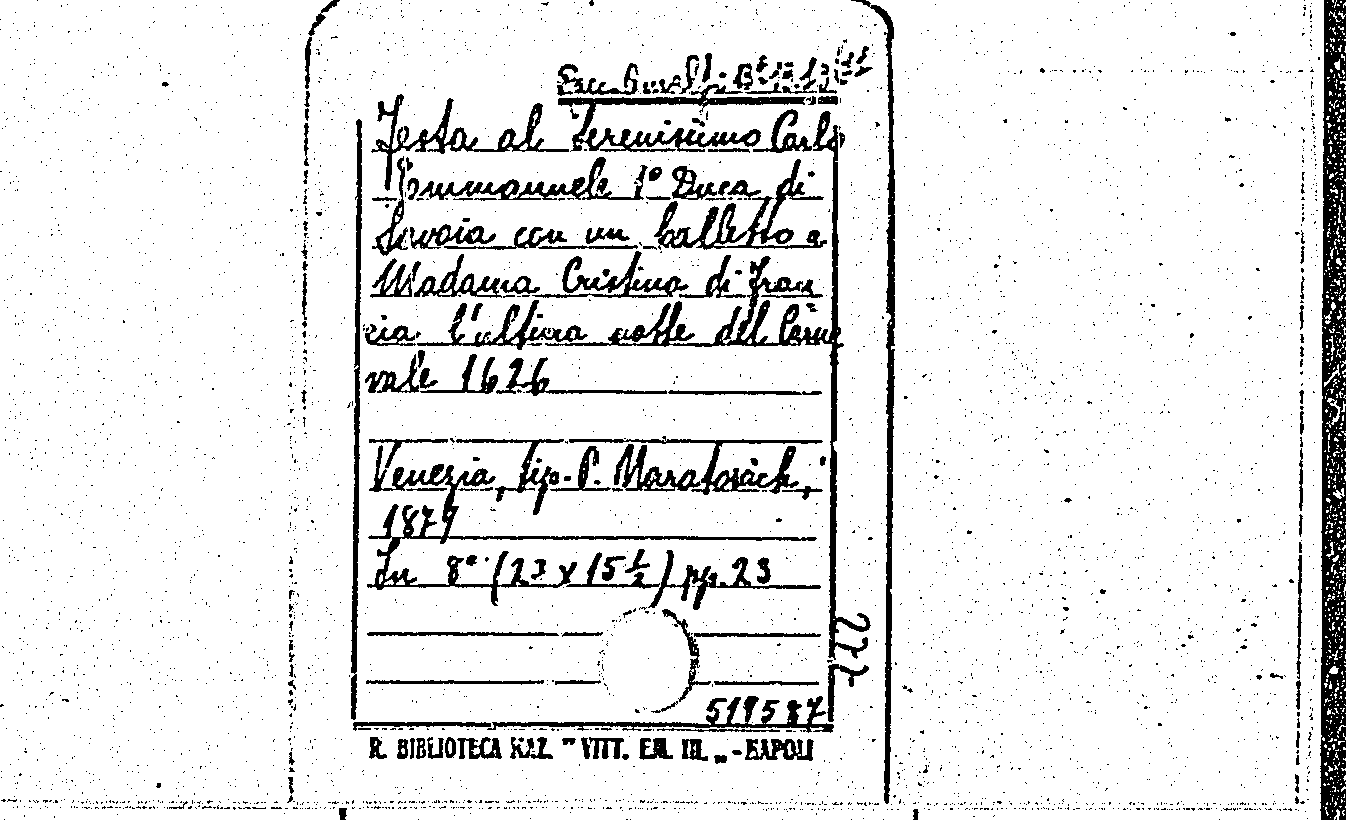 Festa al Serenissimo Carlo
Emmanuele 1° Duca di
Savoia con un balletto a
Madama Cristina di Fran
cia l'ultima notte del Carne
vale 1626
Venezia, tip. P.
1879
In 8° (23 x 15 ½) pp. 23
227
519587
R. BIBLIOTECA NAZ. " VITT. EM. III. „ - NAPOLI